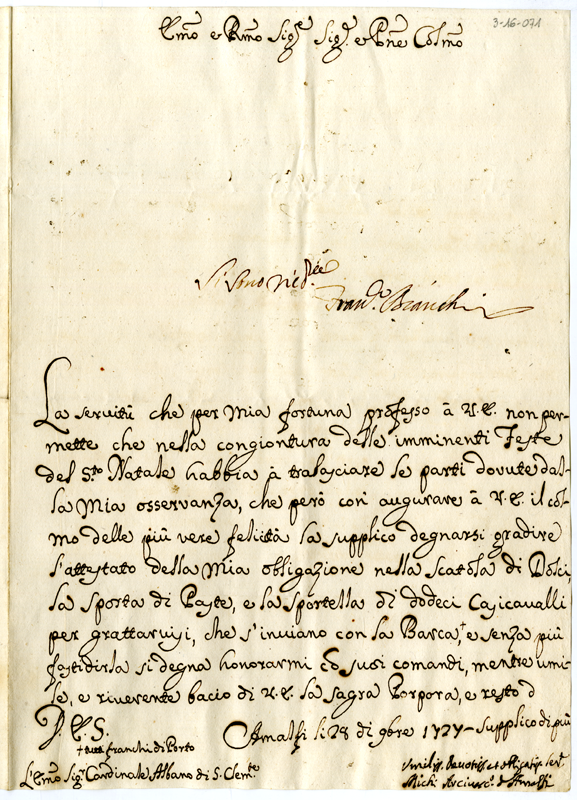 3-16-071
Emo e Rmo Sigre Sigr. e Pne Colmo
Si sono
Franco. Bianchi
La servitù che per mia fortuna professo à V.E. non per-
mette che nella congiontura delle imminenti Feste
del Sto. Natale habbia à trasciare le parti dovute dal-
la Mia osservanza, che però con augurare à V.E. il col-
mo delle più vere felicità la supplico degnarsi gradire
l'attestato della Mia obligazione nella Scatola di Dolci,
la sporta di Paste, e la sportella di dodeci Casicavalli
per grattarvisi, che s'inviano con la Barca,+ e senza più
fastidirla si degna honorarmi co suoi comandi, mentre umi-
le, e riverente bacio di V.E. la sagra Porpora, e resto d
V.E.S. Amalfi li 28 di 9bre 1727 - supplico di più
+ franchi di Porto
L'Emo Sigr Cardinale Albano di S. Clemte
Umiliss. Devotiss. et obligatiss. Ser.
Mich. Arcivesc. d'Amalfi